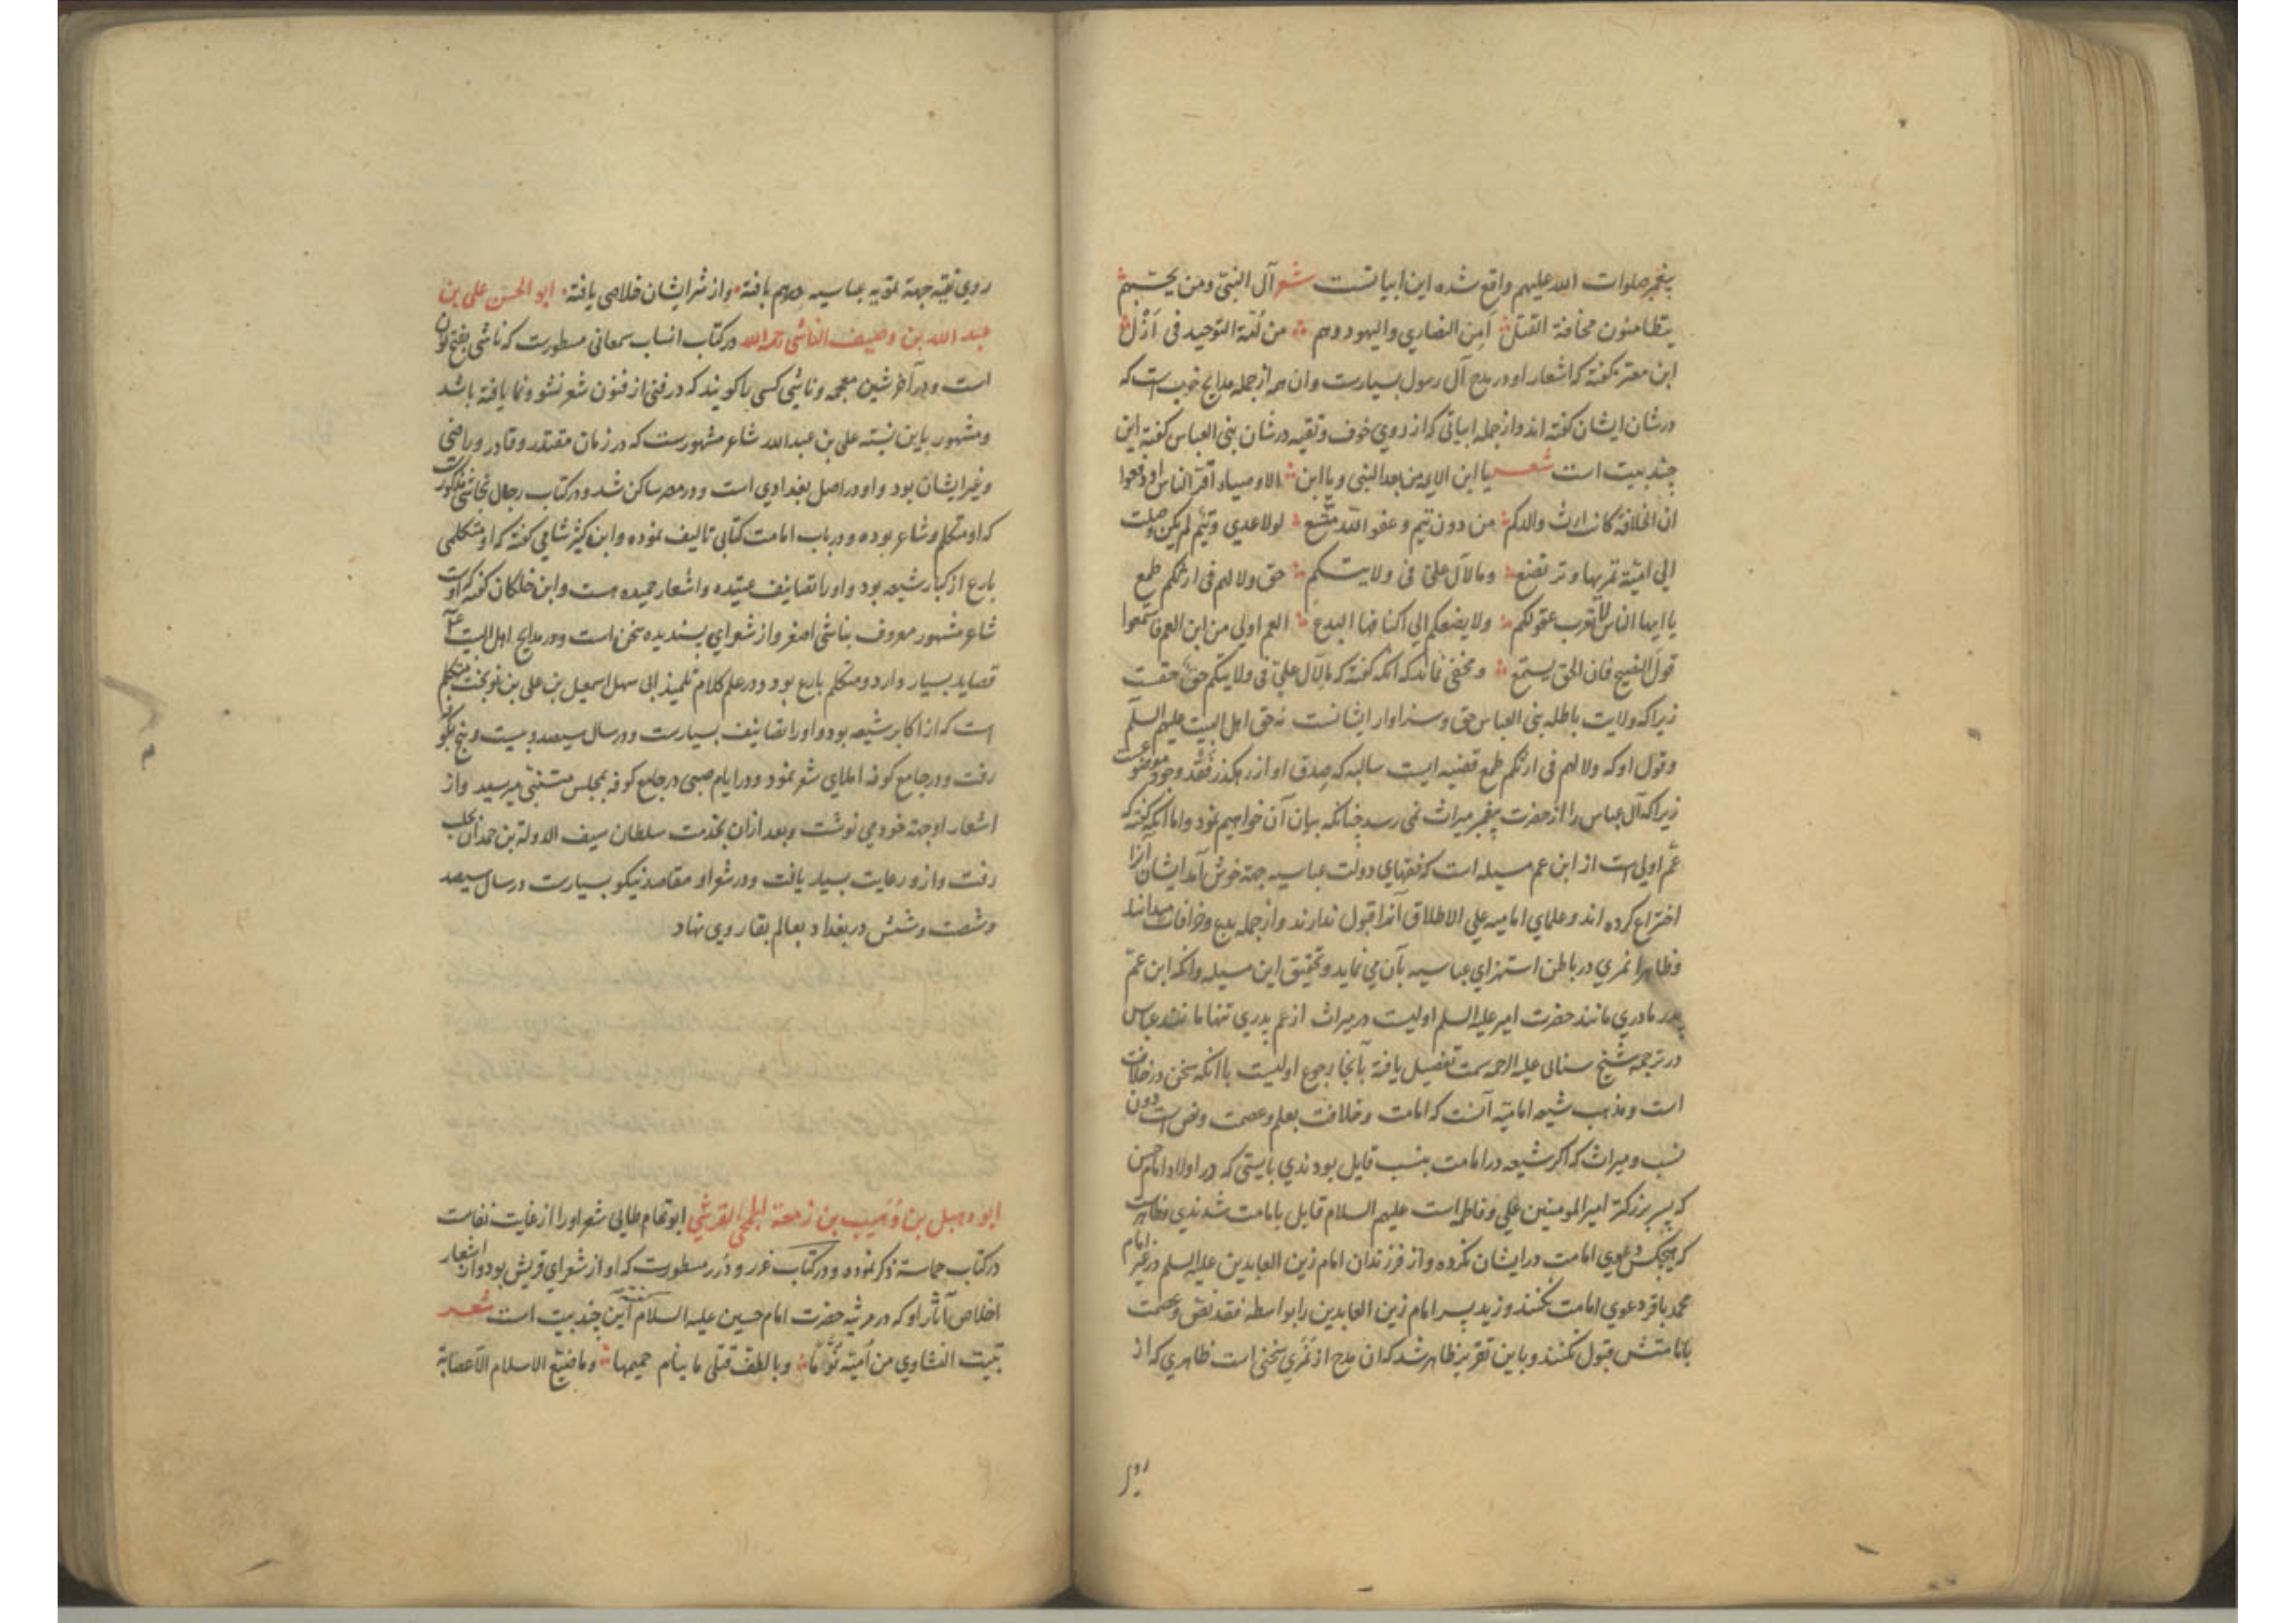 پیغمبر صلوات الله علیهم واقع شده این ابیاتست شعر آل النبی ومن یحبهم
یتطامنون مخافة القتل أمن النصاری والیهود وهم من أمّة التوحید فی أزل
ابن معتز گفته که اشعار او در مدح آل رسول بسیارست وان همه از جمله مدایح خوب است که
در شان ایشان گفته اند و از جمله ابیاتی که از روی خوف و تقیه در شان بنی العباس گفته این
چند بیت است شعر یا ابن الایمه من بعد النبی ویا ابن الاوصیاء أقرّ الناس او دفعوا
ان الخلافة کانت ارث والدکم من دون تیم وعفو الله متّسع لولا عدی وتیم لم یکن وصلت
الی امیّة تمریها وترتضع وما لآل علیّ فی ولایتکم حق ولا لهم فی ارثکم طمع
یا ایها الناس لا تعزب عقولکم ولا یضفکم الی اکنافها البدع العم اولی من ابن العم فاستمعوا
قول النصیح فان الحق یستمع و مخفی نماند که آنکه گفته که ما لآل علیّ فی ولایتکم حقّ حقست
زیرا که ولایت باطله بنی العباس حق و سزاوار ایشانست نه حق اهل البیت علیهم السلم
وقول او که ولا لهم فی ارثکم طمع قضیه ایست سالبه که صدق او از رهگذر فقد وجود موضوعست
زیرا که آل عباس را از حضرت پیغمبر میراث نمی رسد چنانکه بیان آن خواهیم نمود واما آنکه گفته که
عم اولی است از ابن عم مسیله است که فقهای دولت عباسیه جهة خوش آمد ایشان آنرا
اختراع کرده اند و علمای امامیه علی الاطلاق آنرا قبول ندارند و از جمله بدع و خرافات میدانند
وظاهرا نمری در باطن استهزای عباسیه بآن می نماید و تحقیق این مسیله وانکه ابن عمّ
پدر مادری مانند حضرت امیر علیه السلم اولیست در میراث از عم پدری تنها مانند عباس
در ترجمه شیخ سنائی علیه الرحمه سمت تفصیل یافته بآنجا رجوع اولیست با آنکه سخن در خلافت
است ومذهب شیعه امامیّه آنست که امامت وخلافت بعلم و عصمت ونص است دون
نسب ومیراث که اگر شیعه در امامت بنسب قایل بودندی بایستی که در اولاد امام حسن
که پسر بزرگتر امیر المومنین علی وفاطمه است علیهم السلام قایل بامامت شدندی وظاهرست
که هیچکس دعوی امامت در ایشان نکرده و از فرزندان امام زین العابدین علیه السلم در غیر امام
محمد باقر دعوی امامت نکنند وزید پسر امام زین العابدین را بواسطه فقد نص وعصمت
بامامتش قبول نکنند وباین تقریر ظاهر شد که ان مدح از نمری سخنی است ظاهری که از
روی
روی تقیّه جهة تقویه عباسیه بهم یافته و از شر ایشان خلاصی یافته ابو الحسن علی بن
عبد الله بن وصیف الناشی رحمه الله در کتاب انساب سمعانی مسطورست که ناشی بفتح نون
است ودر آخر شین معجمه وناشی کسی را گویند که در فنی از فنون شعر نشو ونما یافته باشد
ومشهور باین نسبته علی بن عبدالله شاعر مشهورست که در زمان مقتدر وقادر وراضی
وغیر ایشان بود و او در اصل بغدادی است ودر مصر ساکن شد ودر کتاب رجال نجاشی مذکورست
که او متکلم وشاعر بوده ودر باب امامت کتابی تالیف نموده وابن کثیر شامی گفته که او متکلمی
بارع از کبار شیعه بود و او را تصانیف عدیده واشعار حمیده هست وابن خلکان گفته که او
شاعر مشهور معروف بناشی اصغر و از شعرای پسندیده سخن است ودر مدایح اهل البیت
قصاید بسیار دارد ومتکلم بارع بود ودر علم کلام تلمیذ ابی سهل اسمعیل بن علی بن نوبخت متکلم
است که از اکابر شیعه بود و او را تصانیف بسیارست ودر سال سیصد وبیست وپنج بکوفه
رفت ودر جامع کوفه املای شعر نمود ودر ایام صبی در جامع کوفه بمجلس متنبّی میرسید واز
اشعار او جهة خود می نوشت وبعد ازان بخدمت سلطان سیف الدوله بن حمدان بحلب
رفت وازو رعایت بسیار یافت ودر شعر او مقاصد نیکو بسیارست در سال سیصد
وشصت وشش در بغداد بعالم بقا روی نهاد
ابو دهبل بن وُهَیب بن زمعة الجمحی القرشی ابو تمام طائی شعر او را از غایت نفاست
در کتاب حماسة ذکر نموده ودر کتاب غرر ودرر مسطورست که او از شعرای قریش بود واز اشعار
اخلاص آثار او که در مرثیه حضرت امام حسین علیه السلام گفته این چند بیت است شعر
تبیت النشاوی من أمیّة نُوّمًا وبالطف قتلی ما ینام حمیمها وما ضیّع الاسلام الّا عصابة